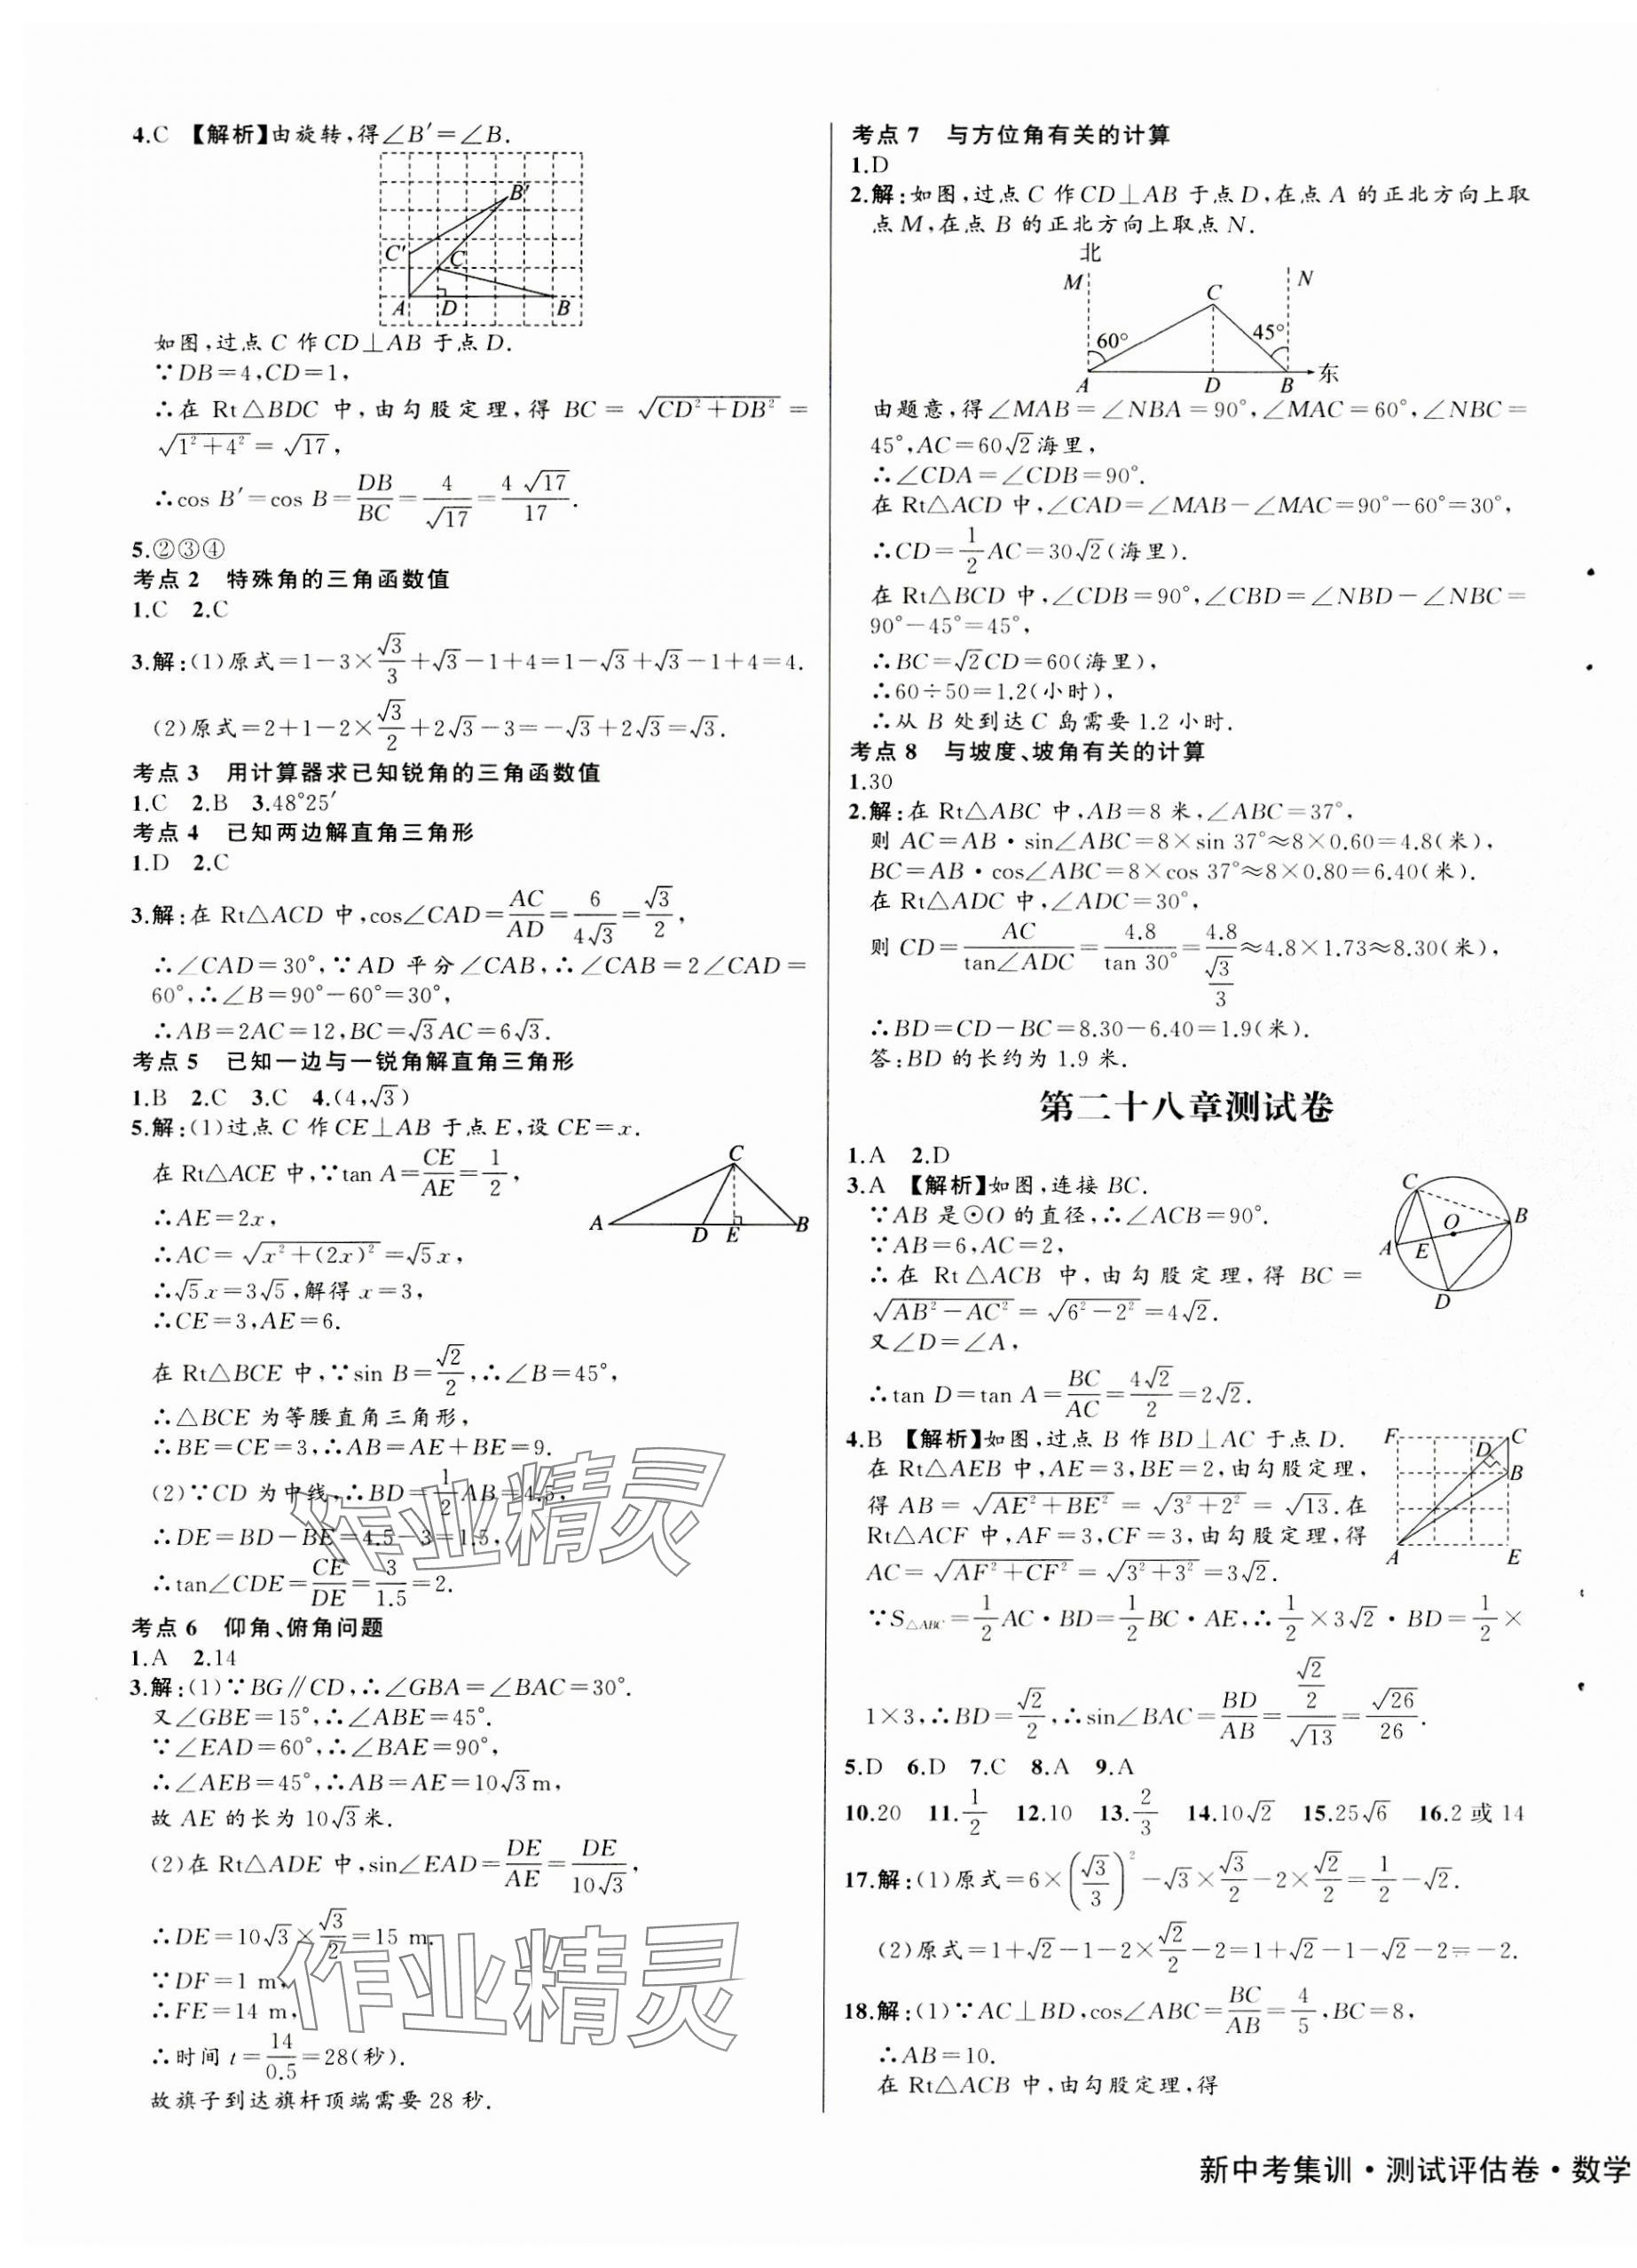 4.C 【解析】由旋转,得∠B′=∠B.
B′
C′
C
A
D
B
如图,过点 C 作CD⊥AB 于点 D.
∵DB=4,CD=1,
∴在 Rt△BDC 中,由勾股定理,得 BC=√(CD²+DB²)=
√(1²+4²)=√17,
∴cos B′=cos B=DB/BC=4/√17=4√17/17.
5.②③④
考点 2 特殊角的三角函数值
1.C 2.C
3.解:(1)原式=1-3×√3/3+√3-1+4=1-√3+√3-1+4=4.
(2)原式=2+1-2×√3/2+2√3-3=-√3+2√3=√3.
考点 3 用计算器求已知锐角的三角函数值
1.C 2.B 3.48°25′
考点 4 已知两边解直角三角形
1.D 2.C
3.解:在 Rt△ACD 中,cos∠CAD=AC/AD=6/4√3=√3/2,
∴∠CAD=30°,∵AD 平分∠CAB,∴∠CAB=2∠CAD=
60°,∴∠B=90°-60°=30°,
∴AB=2AC=12,BC=√3AC=6√3.
考点 5 已知一边与一锐角解直角三角形
1.B 2.C 3.C 4.(4,√3)
5.解:(1)过点 C 作CE⊥AB 于点 E,设 CE=x.
在 Rt△ACE 中,∵tan A=CE/AE=1/2,
∴AE=2x,
∴AC=√(x²+(2x)²)=√5x,
∴√5x=3√5,解得 x=3,
∴CE=3,AE=6.
C
A
D
E
B
在 Rt△BCE 中,∵sin B=√2/2,∴∠B=45°,
∴△BCE 为等腰直角三角形,
∴BE=CE=3,∴AB=AE+BE=9.
(2)∵CD 为中线,∴BD=1/2AB=4.5,
∴DE=BD-BE=4.5-3=1.5,
∴tan∠CDE=CE/DE=3/1.5=2.
考点 6 仰角、俯角问题
1.A 2.14
3.解:(1)∵BG∥CD,∴∠GBA=∠BAC=30°.
又∠GBE=15°,∴∠ABE=45°.
∵∠EAD=60°,∴∠BAE=90°,
∴∠AEB=45°,∴AB=AE=10√3m,
故 AE 的长为 10√3米.
(2)在 Rt△ADE 中,sin∠EAD=DE/AE=DE/10√3,
∴DE=10√3×√3/2=15 m.
∵DF=1 m,
∴FE=14 m,
∴时间 t=14/0.5=28(秒).
故旗子到达旗杆顶端需要 28 秒.
作业精灵
作业精灵
考点 7 与方位角有关的计算
1.D
2.解:如图,过点 C 作CD⊥AB 于点 D,在点 A 的正北方向上取
点 M,在点 B 的正北方向上取点 N.
北
M
N
C
60°
45°
A
D
B
东
由题意,得∠MAB=∠NBA=90°,∠MAC=60°,∠NBC=
45°,AC=60√2海里,
∴∠CDA=∠CDB=90°.
在 Rt△ACD 中,∠CAD=∠MAB-∠MAC=90°-60°=30°,
∴CD=1/2AC=30√2(海里).
在 Rt△BCD 中,∠CDB=90°,∠CBD=∠NBD-∠NBC=
90°-45°=45°,
∴BC=√2CD=60(海里),
∴60÷50=1.2(小时),
∴从 B 处到达 C 岛需要 1.2 小时.
考点 8 与坡度、坡角有关的计算
1.30
2.解:在 Rt△ABC 中,AB=8 米,∠ABC=37°,
则 AC=AB·sin∠ABC=8×sin 37°≈8×0.60=4.8(米),
BC=AB·cos∠ABC=8×cos 37°≈8×0.80=6.40(米).
在 Rt△ADC 中,∠ADC=30°,
则 CD=AC/tan∠ADC=4.8/tan 30°=4.8/(√3/3)≈4.8×1.73≈8.30(米),
∴BD=CD-BC=8.30-6.40=1.9(米).
答:BD 的长约为 1.9 米.
第二十八章测试卷
1.A 2.D
3.A 【解析】如图,连接 BC.
∵AB 是⊙O 的直径,∴∠ACB=90°.
∵AB=6,AC=2,
∴在 Rt△ACB 中,由勾股定理,得 BC=
√(AB²-AC²)=√(6²-2²)=4√2.
又∠D=∠A,
∴tan D=tan A=BC/AC=4√2/2=2√2.
C
B
O
A
E
D
4.B 【解析】如图,过点 B 作 BD⊥AC 于点 D.
在 Rt△AEB 中,AE=3,BE=2,由勾股定理,
得 AB=√(AE²+BE²)=√(3²+2²)=√13.在
Rt△ACF 中,AF=3,CF=3,由勾股定理,得
AC=√(AF²+CF²)=√(3²+3²)=3√2.
F
C
D
B
A
E
∵S△ABC=1/2AC·BD=1/2BC·AE,∴1/2×3√2·BD=1/2×
1×3,∴BD=√2/2,∴sin∠BAC=BD/AB=(√2/2)/√13=√26/26.
5.D 6.D 7.C 8.A 9.A
10.20 11.1/2 12.10 13.2/3 14.10√2 15.25√6 16.2 或 14
17.解:(1)原式=6×(√3/3)²-√3×√3/2-2×√2/2=1/2-√2.
(2)原式=1+√2-1-2×√2/2-2=1+√2-1-√2-2=-2.
18.解:(1)∵AC⊥BD,cos∠ABC=BC/AB=4/5,BC=8,
∴AB=10.
在 Rt△ACB 中,由勾股定理,得
新中考集训·测试评估卷·数学